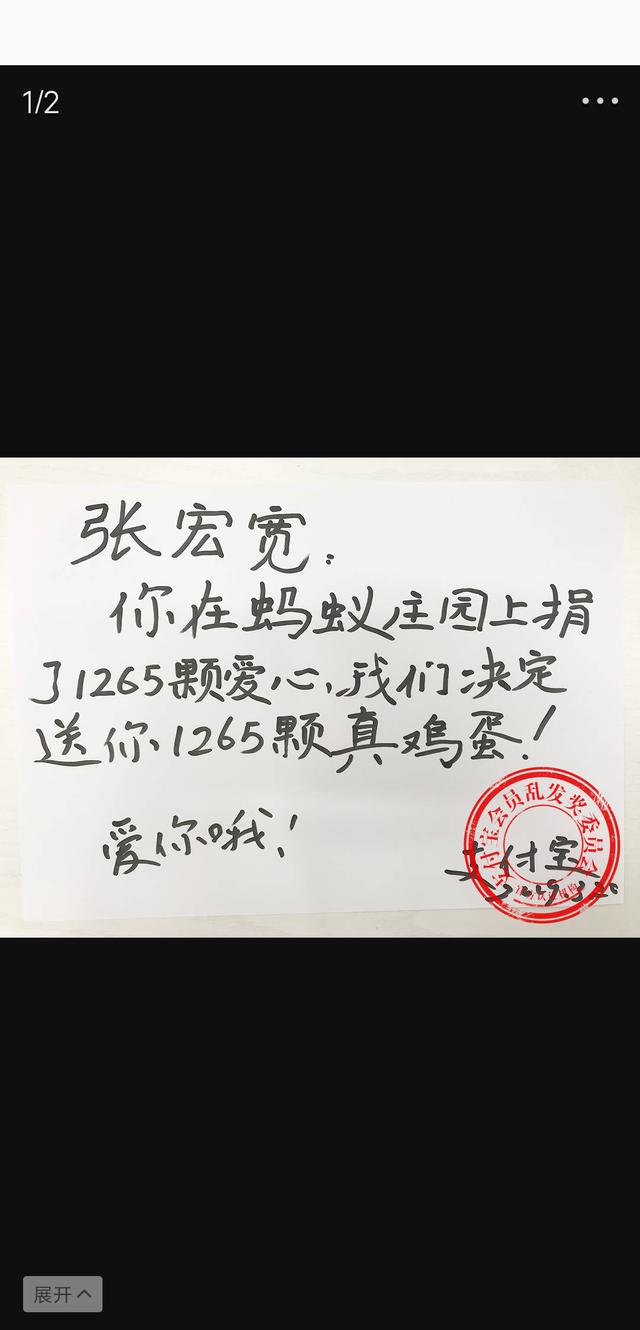 1/2
张宏宽:
你在蚂蚁庄园上捐
了1265颗爱心,我们决定
送你1265颗真鸡蛋!
爱你哦!
支付宝会员乱发奖委员会
支付宝
展开